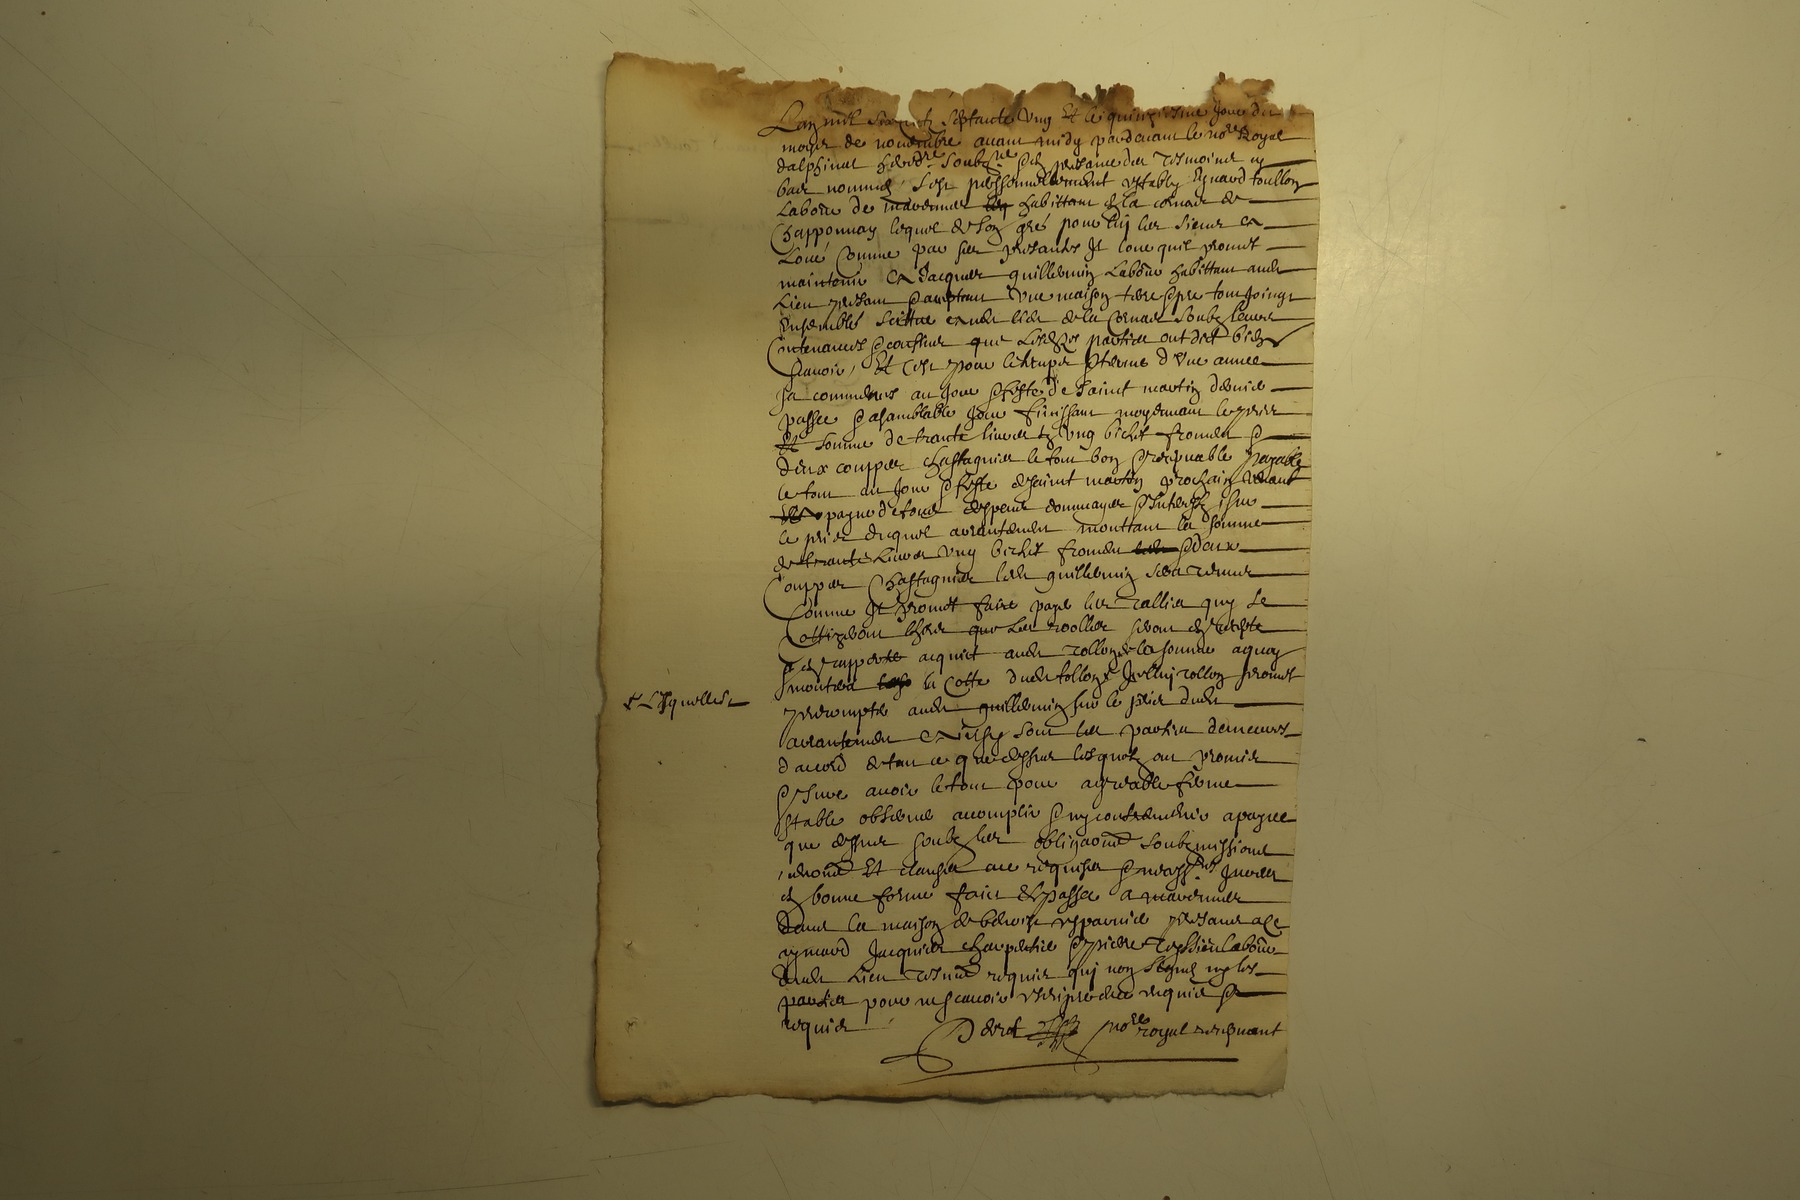 Lan mil six centz septante ung Et le quinziesme Jour du
moys de novembre avant midy pardevant le no.re Royal
dalphinal hered.re soubz.né & en presance des tesmoins cy
bas nommés sest personnellement estably Eynard tollon
Labour de marennes habittant en la comune de
Chapponnay lequel de son gré pour luy les siens a
Loué Comme par ses presantes Et loue quil promet
maintenir a Jacques guillermin Labour habittant audit
Lieu presant & aceptant Une maison terre & pre tout Joingt
Ensembles scittue audit lieu de la Comune soubz leurs
Contenances & confins que Lesd parties ont dit bien
scavoir, Et cest pour le temps & terme d'Une annee
ja commences au Jour & feste de saint martin dernier
passee & a semblable Jour finissant moyenant le prix
Et somme de trante livres ung bichet froment &
deux couppes chastagnies le tout bon & recepvable payable
le tout au Jour & feste de saint martin prochain venant
a payne de tous despens dommages & Interestz sur
le prix duquel arrantement monttant la somme
de trante Livres ung bichet froment & deux
Couppes Chastagnies ledit guillermin sera tenus
Comme Il promet faire paye les tallies quy se
Cottizeront lhors que les roolles seront en recepte
& en rapporter acquict audit tollon de la somme a quoy
montera la Cotte dudit tollon Icelluy tollon promet
+ Laquelle
precompter audit guillermin sur le prix dudit
arrantement a insy sont les parties demeures
d'accord de tout ce que dessus lesquels ont promis
& Jure avoir le tout pour agreable ferme
stable observer acomplir & ny contrevenir a payne
que dessus soubz les obligaons soubzmissions
renons Et clauses ace requises & necess.res Jurees
en bonne forme faict & passé a marennes
dans la maison de benoist presans a ce
eymard Jacquier charpentier & pierre tessier labour
dudit Lieu tesmoins requis quy nont signé ny les
parties pour ne scavoir escripre de ce enquis &
requis
Deret no.re royal recepvant